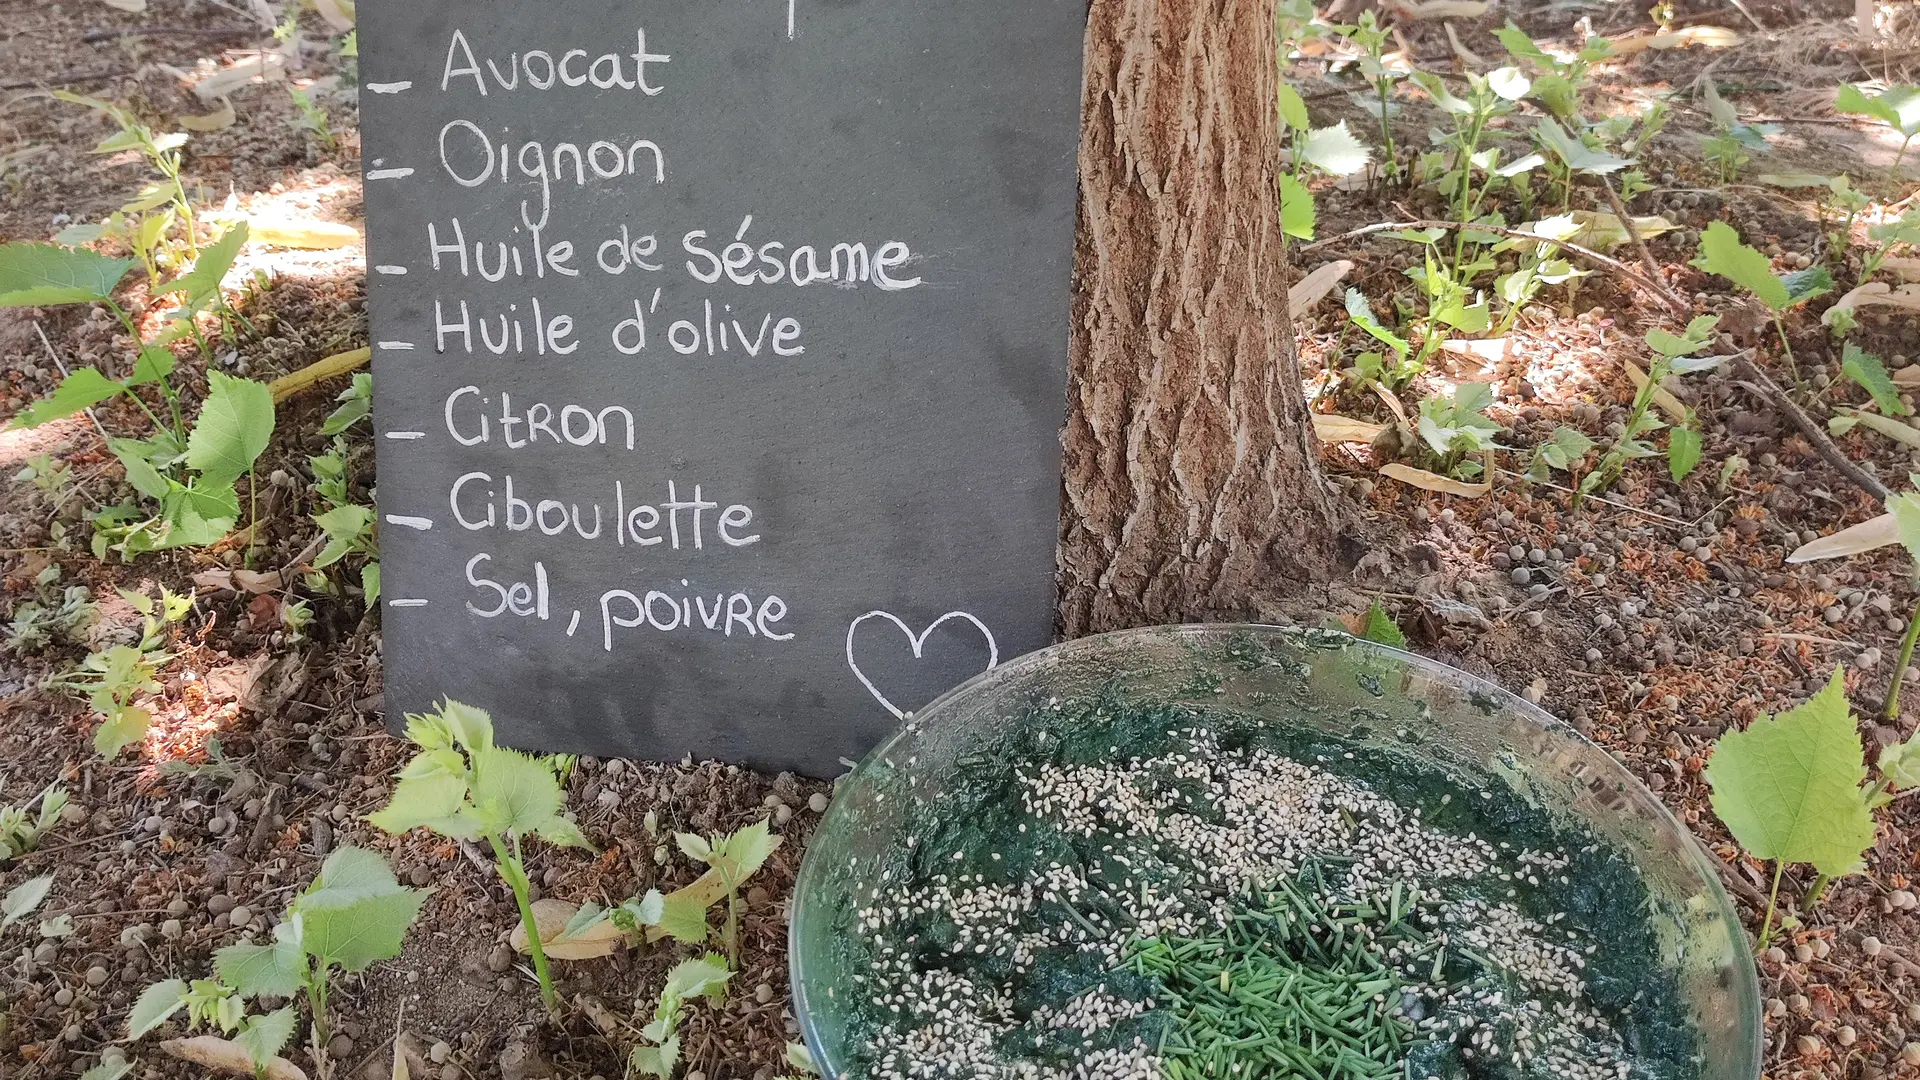 - Avocat
- Oignon
- Huile de sésame
- Huile d'olive
- Citron
- Ciboulette
- Sel, poivre